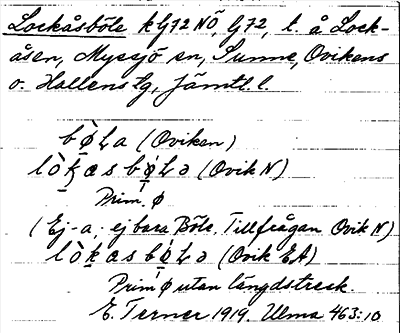 Lockåsböle k G72 NÖ, G72, t. å Lock-
åsen, Myssjö sn, Sunne, Ovikens
o. Hallens tg, Jämtl. l.
bø̀La (Oviken)
lòḵasbǿ̱Lə (Ovik N)
Prim. ø
(Ej -a; ej bara Böle. Tillfrågan Ovik N)
lòḵasbǿ̱Lə (Ovik EA)
Prim ø utan längdstreck.
E. Terner 1919. Ulma 463:10